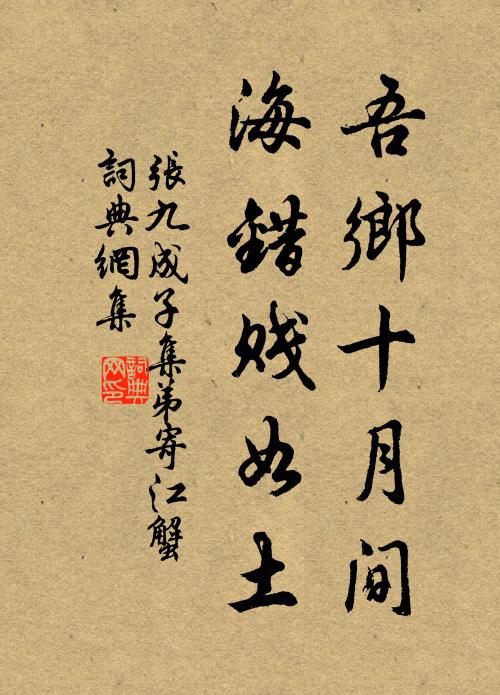 吾鄉十月間
海錯賤如土
張九成子集弟寄江蟹
詞典網集
詞典网印